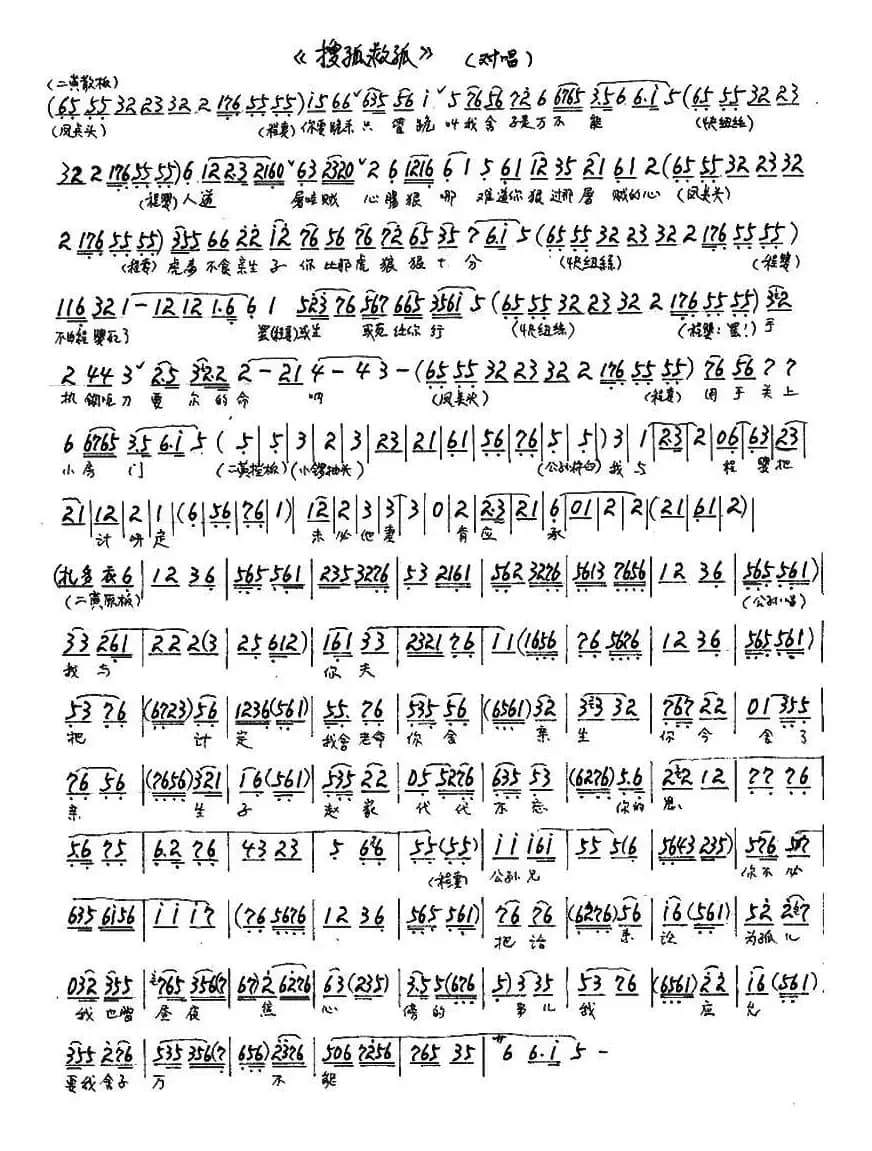 《搜孤救孤》 (对唱)
(二黄散板)
(65 55 32 23 32 2 176 55 55) i5 66 635 56 i 5 76 56 72 6 6765 3.56 6.i 5 (65 55 32 23
(凤点头) (程妻) 你要跪来只管跪 叫我舍子是万不能 (快纽丝)
32 2 176 55 55) 6 12 23 2160 63 2320 2 6 1216 6 1 5 61 12 35 21 61 2 (65 55 32 23 32
(程婴) 人道 屠贼心肠狠哪 难道你狠过那屠贼的心 (凤点头)
2 176 55 55) 355 66 22 i2 76 56 76 72 65 35 7 6.i 5 (65 55 32 23 32 2 176 55 55)
(程妻) 虎毒不食亲生子 你比那虎狼狠十分 (快纽丝) (程婴)
116 32 1 - 12 12 1.6 6 1 523 76 567 665 3561 5 (65 55 32 23 32 2 176 55 55) 32
不如程婴死了罢 (程妻) 或生或死任你行 (快纽丝) (程婴:罢!) 手
2 44 3 2.5 32.2 2 - 21 4 - 43 - (65 55 32 23 32 2 176 55 55) 76 56 7 7
执钢刀要尔的命 啊 (凤点头) (程妻) 用手关上
6 6765 3.5 6.i 5 ( 5 | 5 | 3 | 2 | 3 | 23 | 21 | 61 | 56 | 76 | 5 | 5 ) 3 | 1 | 23 | 2 | 06 | 63 | 23
小房门 (二黄摇板) (小锣抽头) (公孙杵臼) 我与程婴把
21 | 12 | 2 | 1 | (6 | 56 | 76 | 1) | 12 | 2 | 3 | 3 | 3 | 0 | 2 | 2.3 | 21 | 6 | 01 | 2 | 2 | (21 | 61 | 2)
计所定 未必他妻肯应承
(扎多衣6 | 12 36 | 565 561 | 235 3276 | 53 2161 | 562 3276 | 5613 7656 | 12 36 | 565 561)
(二黄原板) (公孙唱)
33 261 | 22 2(3 | 25 612) | 161 33 | 2321 76 | 11 (1656 | 76 5676 | 12 36 | 565 561)
我与 你夫
53 76 | (6723) 56 | 1236 (561) | 55 76 | 535 56 | (6561) 32 | 33 32 | 767 22 | 01 355
把 计 定 我舍老命 你舍 亲 生 你今 舍了
76 56 | (7656) 321 | i6 (561) | 535 22 | 05 5276 | 635 53 | (6276) 5.6 | 22 12 | 77 76
亲 生 子 赵家 代代 不忘 你的 恩
56 75 | 6.2 76 | 43 23 | 5 66 | 55 (55) | i i i6i | 55 5(6 | 5643 235) | 576 567
(程婴) 公孙兄 你不必
635 6i56 | i i i 7 | (76 5676 | 12 36 | 565 561) | 76 76 | (6276) 56 | i6 (561) | 52 227
把话 来 论 为孤儿
032 355 | 765 356(7 | 67) 2 6276 | 63 (235) | 3.5 5(676 | 5) 3 35 | 53 76 | (6561) 22 | i6 (561)
我也曾 昼夜 焦 心 傍的 事儿 我 应 允
355 276 | 535 356(7 | 656) 2376 | 506 7256 | 765 35 | 6 6.i 5 -
要我舍子 万 不 能